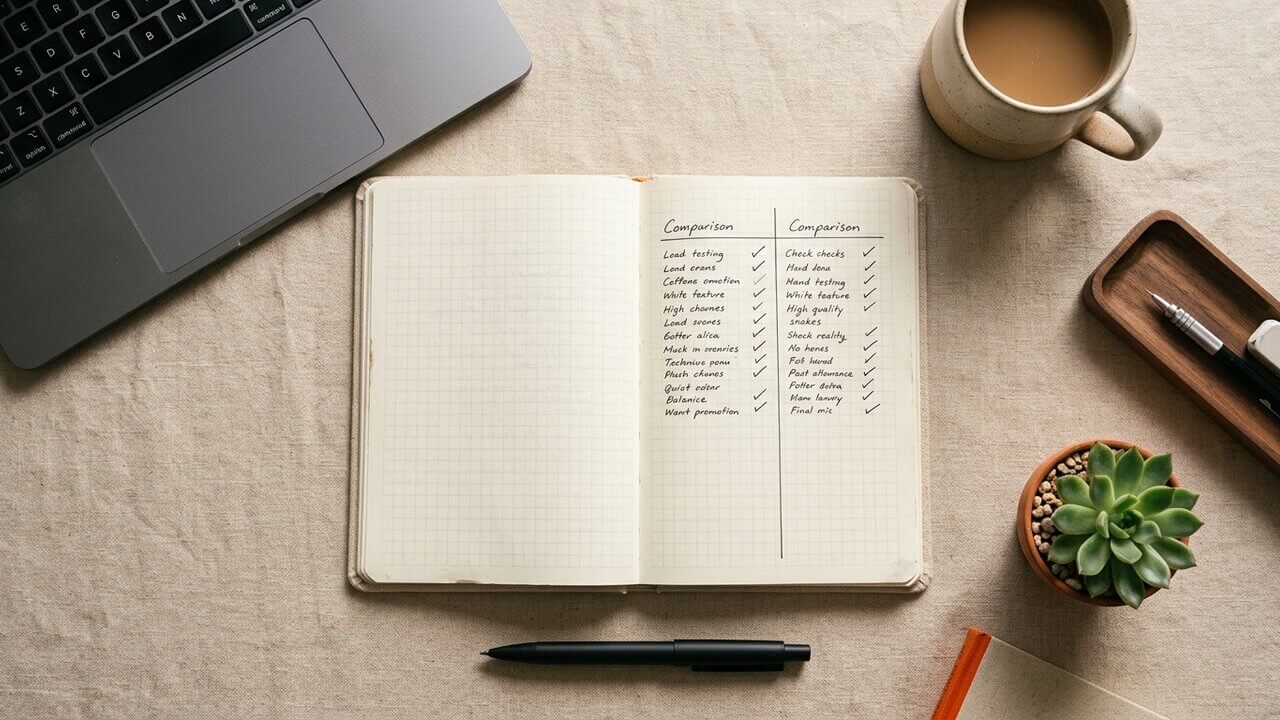 Comparison
Load testing
Lond erans
Coffene emotion
White texture
High chownes
Lond svores
Gotter alica
Muck m orenries
Technive ponu
Plush chones
Quiot edenr
Balanice
Want promotion
Comparison
Check checks
Haud dona
Hand testing
White toature
High quality
snokes
Shock reality
No hones
Fob huod
Post allomance
Potter bolva
Final mic
command